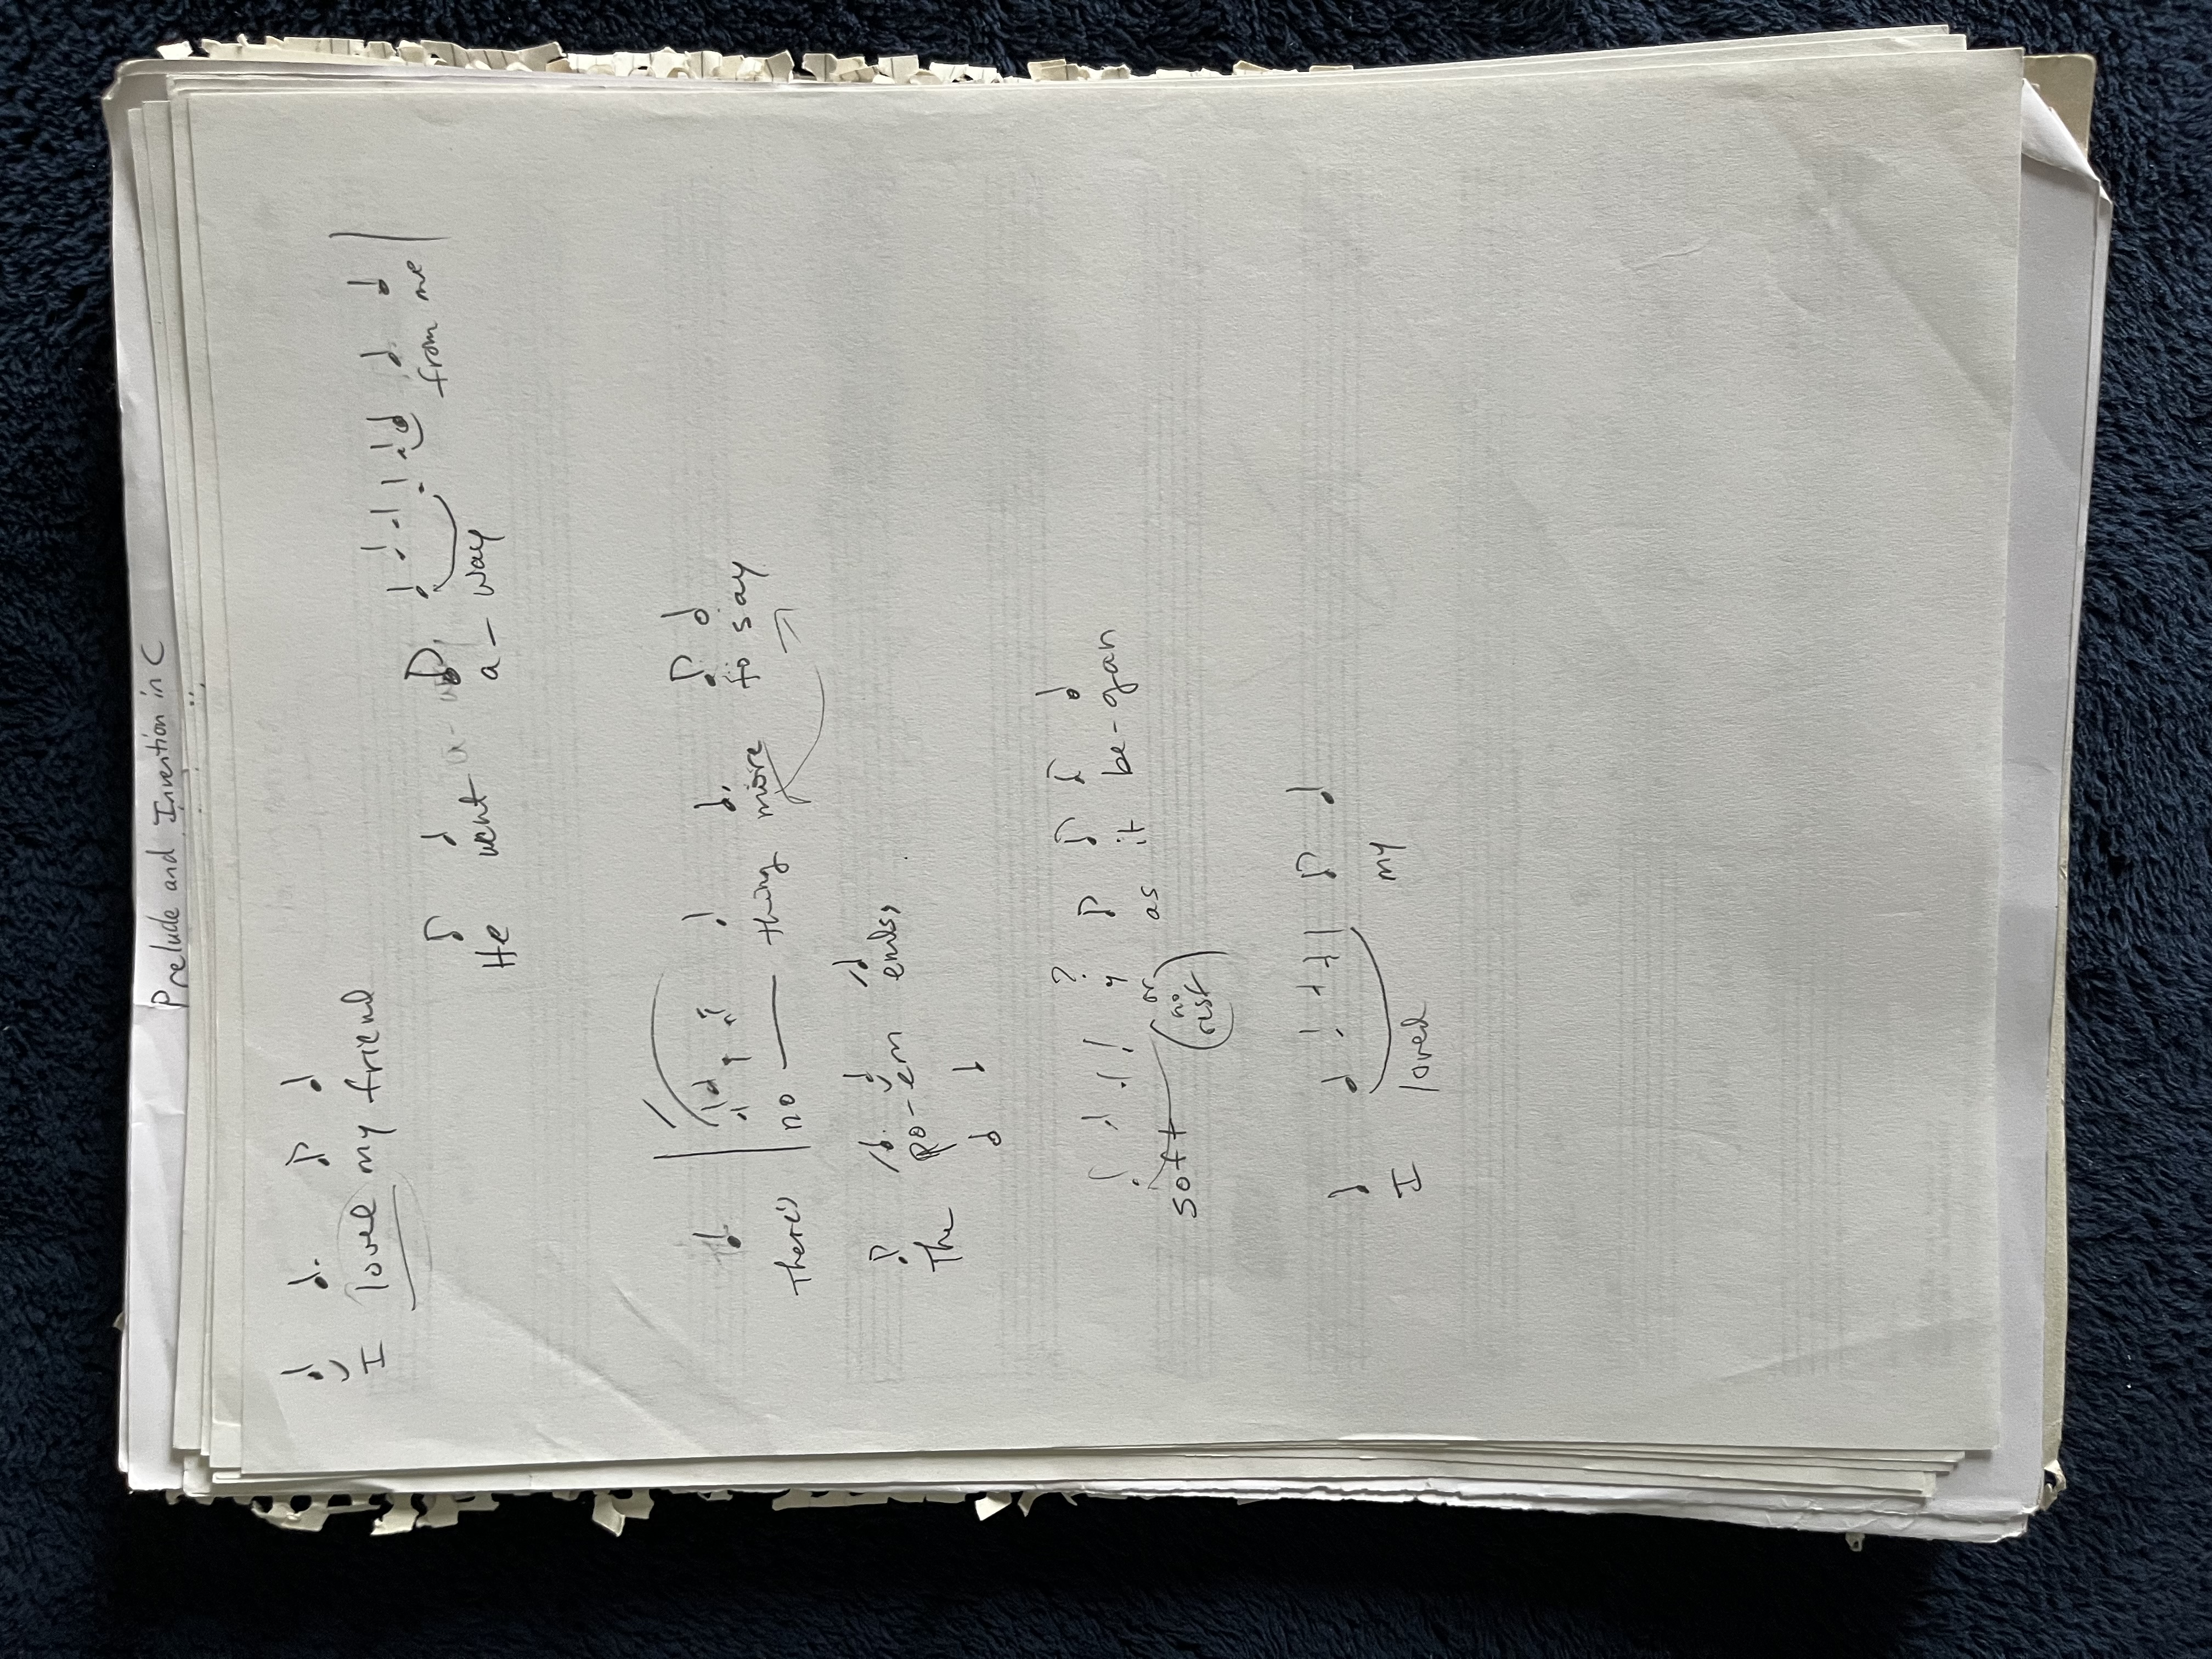 Prelude and Invention in C
I loved my friend
He went a - way from me
there's no — thing more to say
The po - em ends,
soft as it be - gan
(or no rest)
I loved my